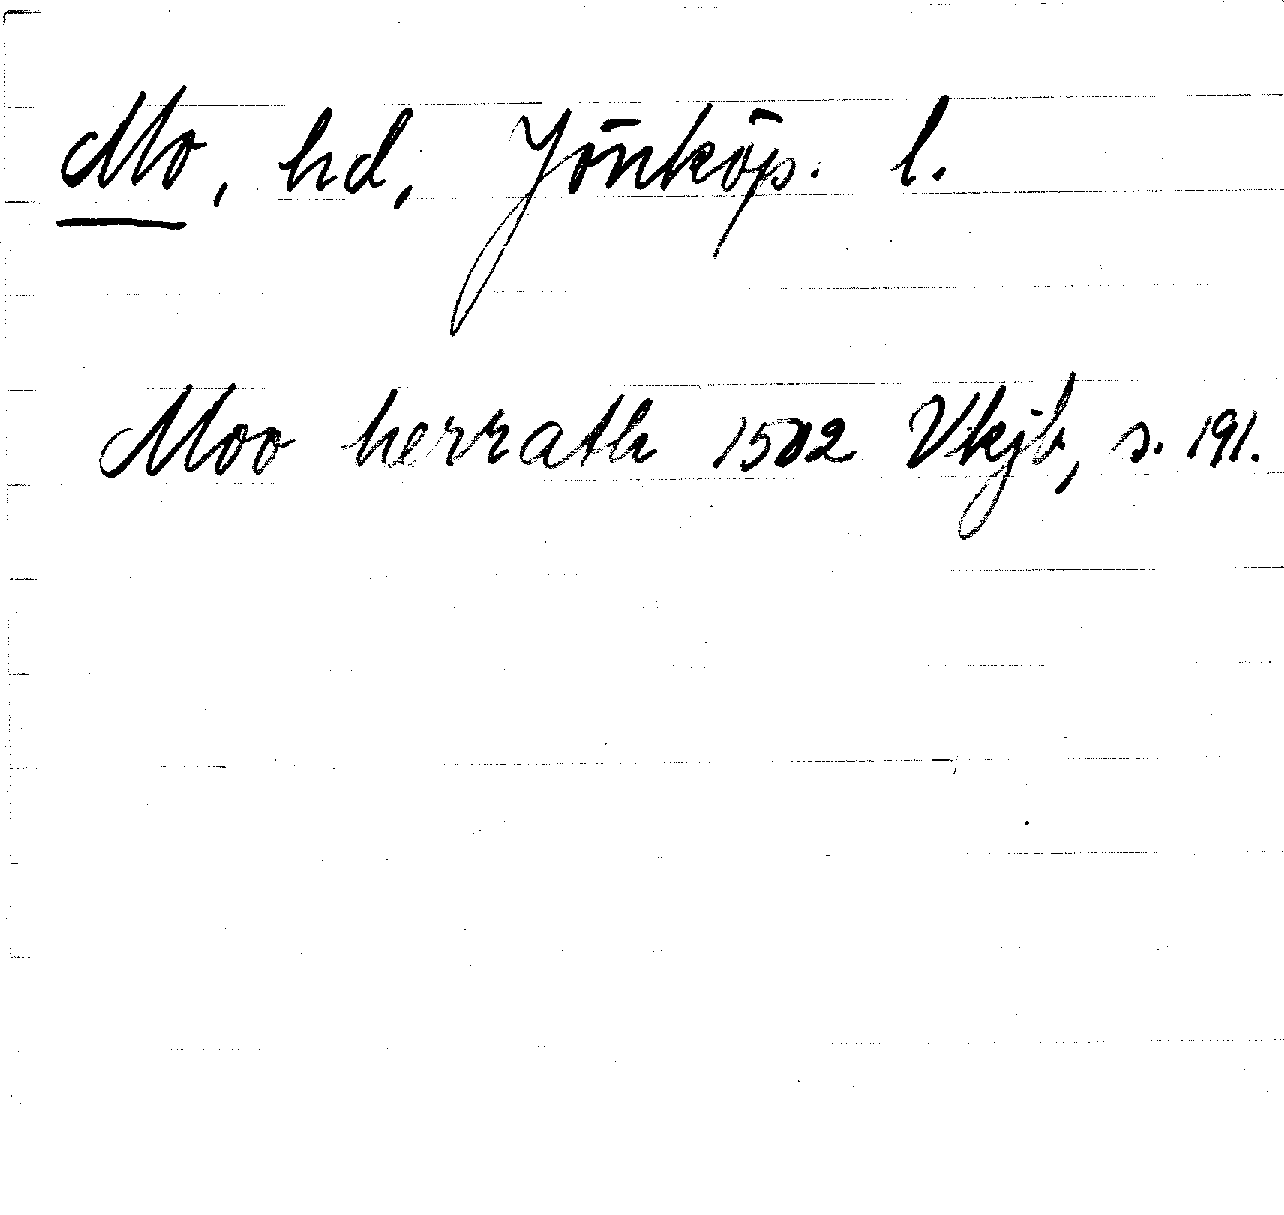 Mo, hd, Jönköp. l.
Moo herrath 1502 Vkjb, s. 191.